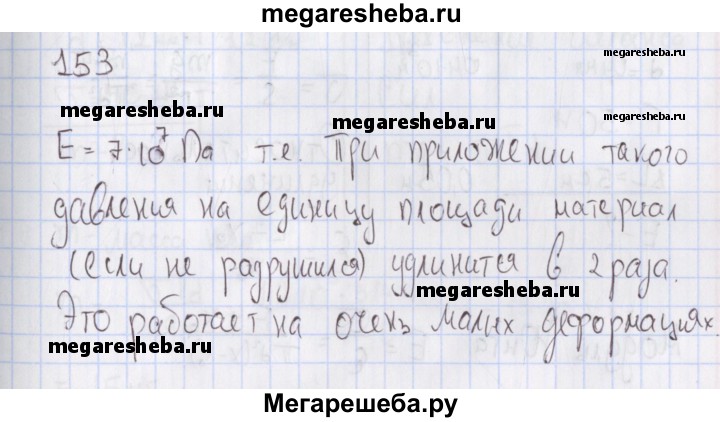 megaresheba.ru
153
megaresheba.ru
megaresheba.ru
megaresheba.ru
megaresheba.ru
E = 7·10⁷ Па т.е. При приложении такого
давления на единицу площади материал
(если не разрушился) удлинится в 2 раза.
megaresheba.ru
Это работает на очень малых деформациях.
megaresheba.ru
Мегарешеба.ру